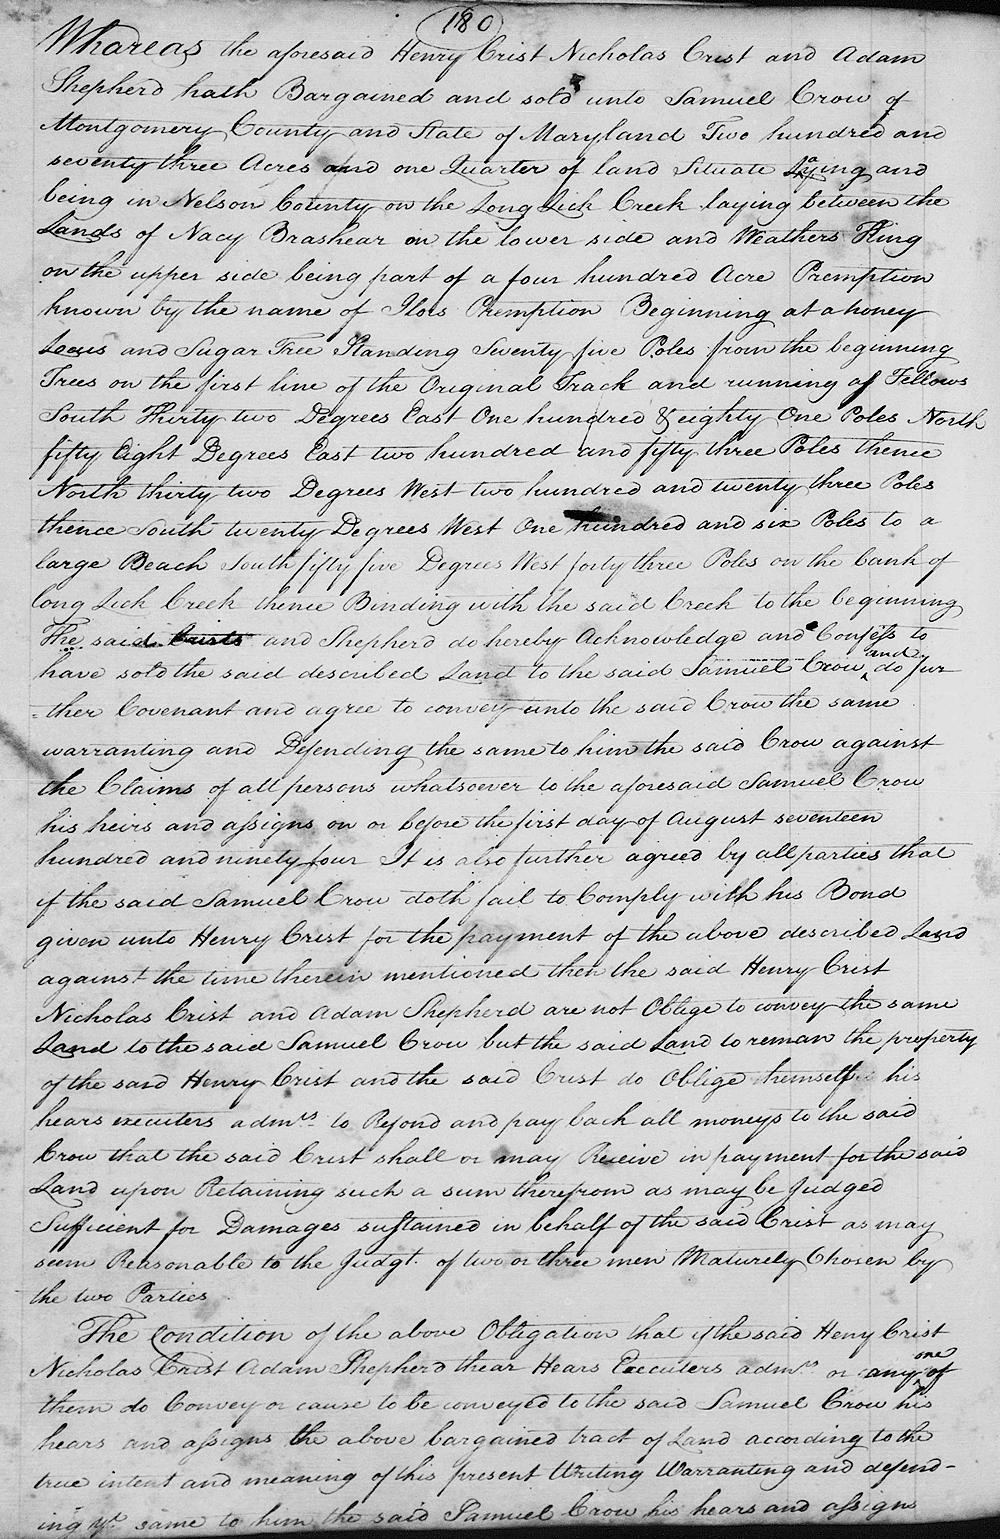 180
Whareas the aforesaid Henry Crist Nicholas Crist and Adam
Shepherd hath Bargained and sold unto Samuel Crow of
Montgomery County and State of Maryland Two hundred and
seventy three Acres and one Quarter of land Situate Laying and
being in Nelson County on the Long Lick Creek laying between the
Lands of Nacy Brashear on the lower side and Weathers Hing
on the upper side being part of a four hundred Acre Premption
known by the name of Premption Beginning at a honey
Locus and Sugar Tree Standing Seventy five Poles from the beginning
Trees on the first line of the Original Track and running as Fellows
South Thirty two Degrees East One hundred & eighty One Poles North
fifty Eight Degrees East two hundred and fifty three Poles thence
North thirty two Degrees West two hundred and twenty three Poles
thence South twenty Degrees West One hundred and six Poles to a
large Beach South fifty five Degrees West forty three Poles on the bank of
long Lick Creek thence Binding with the said Creek to the beginning
The said Crists and Shepherd do hereby Acknowledge and Confess to
have sold the said described Land to the said Samuel Crow and do fur
=ther Covenant and agree to convey unto the said Crow the same
warranting and Defending the same to him the said Crow against
the Claims of all persons whatsoever to the aforesaid Samuel Crow
his heirs and assigns on or before the first day of August seventeen
hundred and ninety four It is also further agreed by all parties that
if the said Samuel Crow doth fail to Comply with his Bond
given unto Henry Crist for the payment of the above described Land
against the time therein mentioned then the said Henry Crist
Nicholas Crist and Adam Shepherd are not Oblige to convey the same
Land to the said Samuel Crow but the said Land to reman the property
of the said Henry Crist and the said Crist do Oblige themself his
hears executers admrs to Refond and pay back all moneys to the said
Crow that the said Crist shall or may Receive in payment for the said
Land upon Retaining such a sum therefrom as may be Judged
Sufficient for Damages sustained in behalf of the said Crist as may
seem Reasonable to the Judgt. of two or three men Maturely Chosen by
the two Parties
The Condition of the above Obligation that if the said Henry Crist
Nicholas Crist Adam Shepherd thear Hears Executers admrs or any one of
them do Convey or cause to be conveyed to the said Samuel Crow his
hears and assigns the above bargained tract of Land according to the
true intent and meaning of this present Writing Warranting and defend-
ing ye same to him the said Samuel Crow his hears and assigns